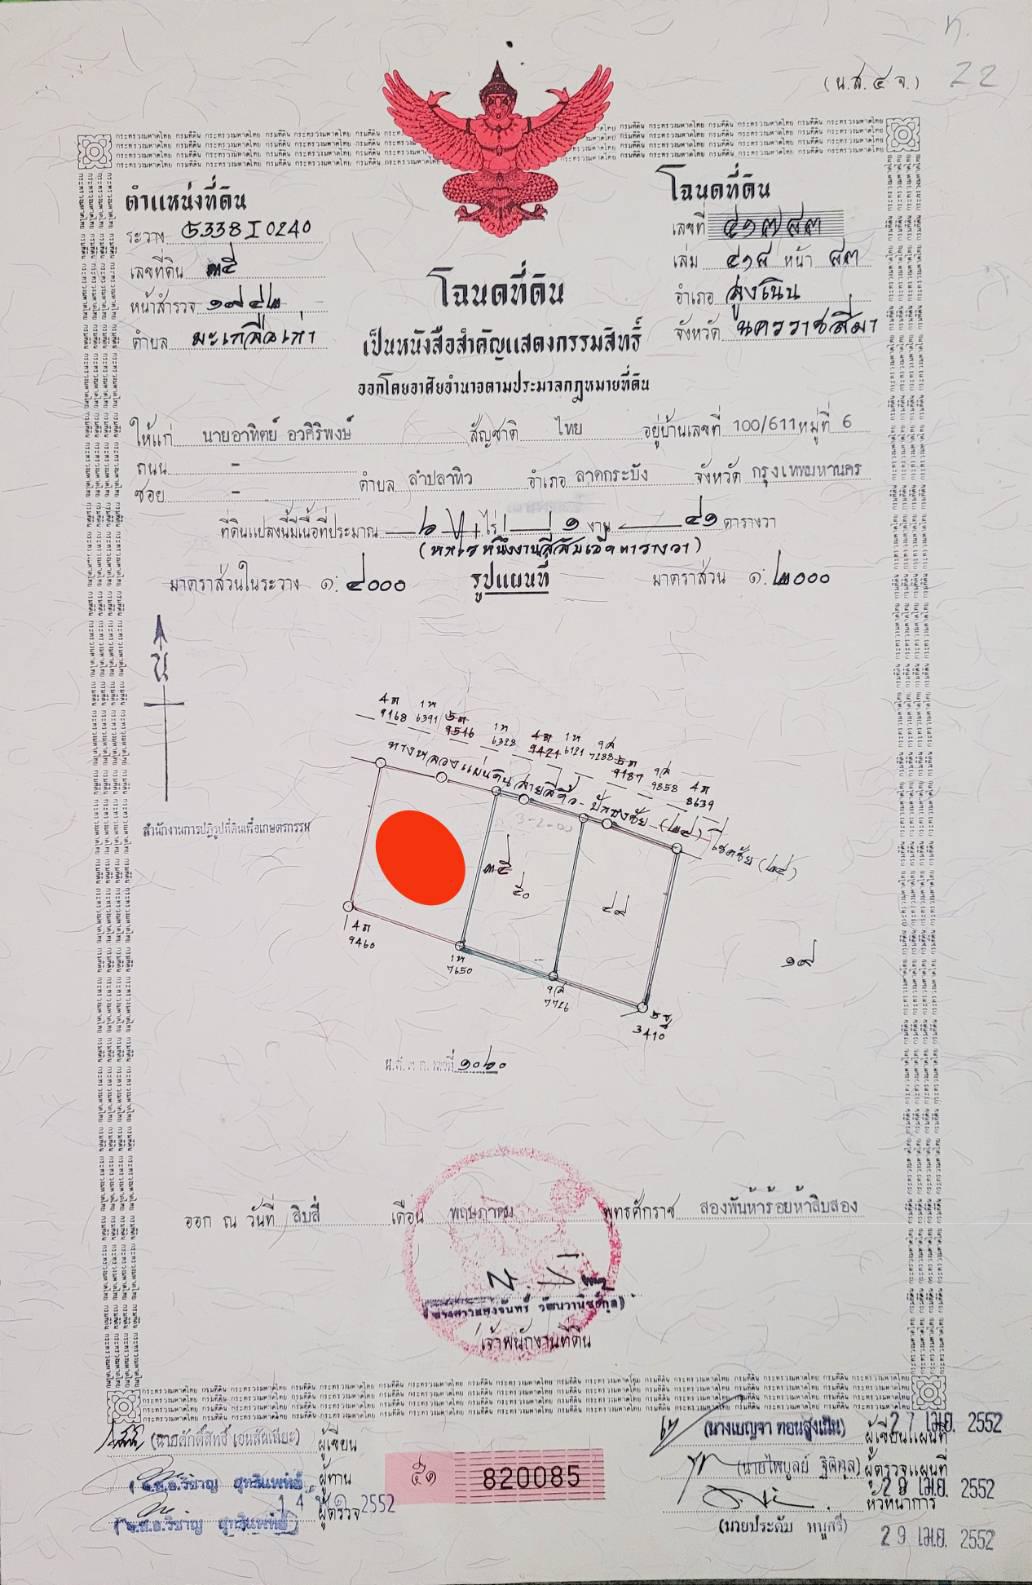 22
(น.ส.๔ จ.)
ตำแหน่งที่ดิน
ระวาง 5338 I 0240
เลขที่ดิน ๓๕
หน้าสำรวจ ๑๗๔๒
ตำบล มะเกลือเก่า
โฉนดที่ดิน
เลขที่ ๔๑๗๔๓
เล่ม ๔๑๘ หน้า ๔๓
อำเภอ สูงเนิน
จังหวัด นครราชสีมา
โฉนดที่ดิน
เป็นหนังสือสำคัญแสดงกรรมสิทธิ์
ออกโดยอาศัยอำนาจตามประมวลกฎหมายที่ดิน
ให้แก่ นายอาทิตย์ อวศิริพงษ์ สัญชาติ ไทย อยู่บ้านเลขที่ 100/611 หมู่ที่ 6
ถนน -
ซอย - ตำบล ลำปลาทิว อำเภอ ลาดกระบัง จังหวัด กรุงเทพมหานคร
ที่ดินแปลงนี้มีเนื้อที่ประมาณ ๖ ไร่ ๑ งาน ๔๑ ตารางวา
(หกไร่หนึ่งงานสี่สิบเอ็ดตารางวา)
มาตราส่วนในระวาง ๑:๔๐๐๐ รูปแผนที่ มาตราส่วน ๑:๒๐๐๐
น
4ต 9168
1ห 6391
5ต 9546
1ห 6328
4ต 9424
1ห 6121
7288
5ต 9187
9858
4ต 8639
ทางหลวงแผ่นดินสายสีคิ้ว-ปักธงชัย-โชคชัย (๒๔)
สำนักงานการปฏิรูปที่ดินเพื่อเกษตรกรรม
3-2-00
๓๕
๕๐
๔๙
๑๙
4ต 9460
1ห 7650
7726
3410
๑๐๒๐
ออก ณ วันที่ สิบสี่ เดือน พฤษภาคม พุทธศักราช สองพันห้าร้อยห้าสิบสอง
(นางสาวแสงจันทร์ วัฒนวานิชย์กุล)
เจ้าพนักงานที่ดิน
(นายศักดิ์สิทธิ์ เอนสันเทียะ) ผู้เขียน
(จ.ส.อ.วิชาญ สุทธินเพท์) ผู้ทาน
2552
(จ.ส.อ.วิชาญ สุทธินเพท์) ผู้ตรวจ
๕๑ 820085
(นางเบญจา ทอนสูงเนิน) ผู้เขียนแผนที่
27 เม.ย. 2552
(นายไพบูลย์ ฐิติกุล) ผู้ตรวจแผนที่
29 เม.ย. 2552
หัวหน้าการ
(นายประดับ หนูศรี)
29 เม.ย. 2552